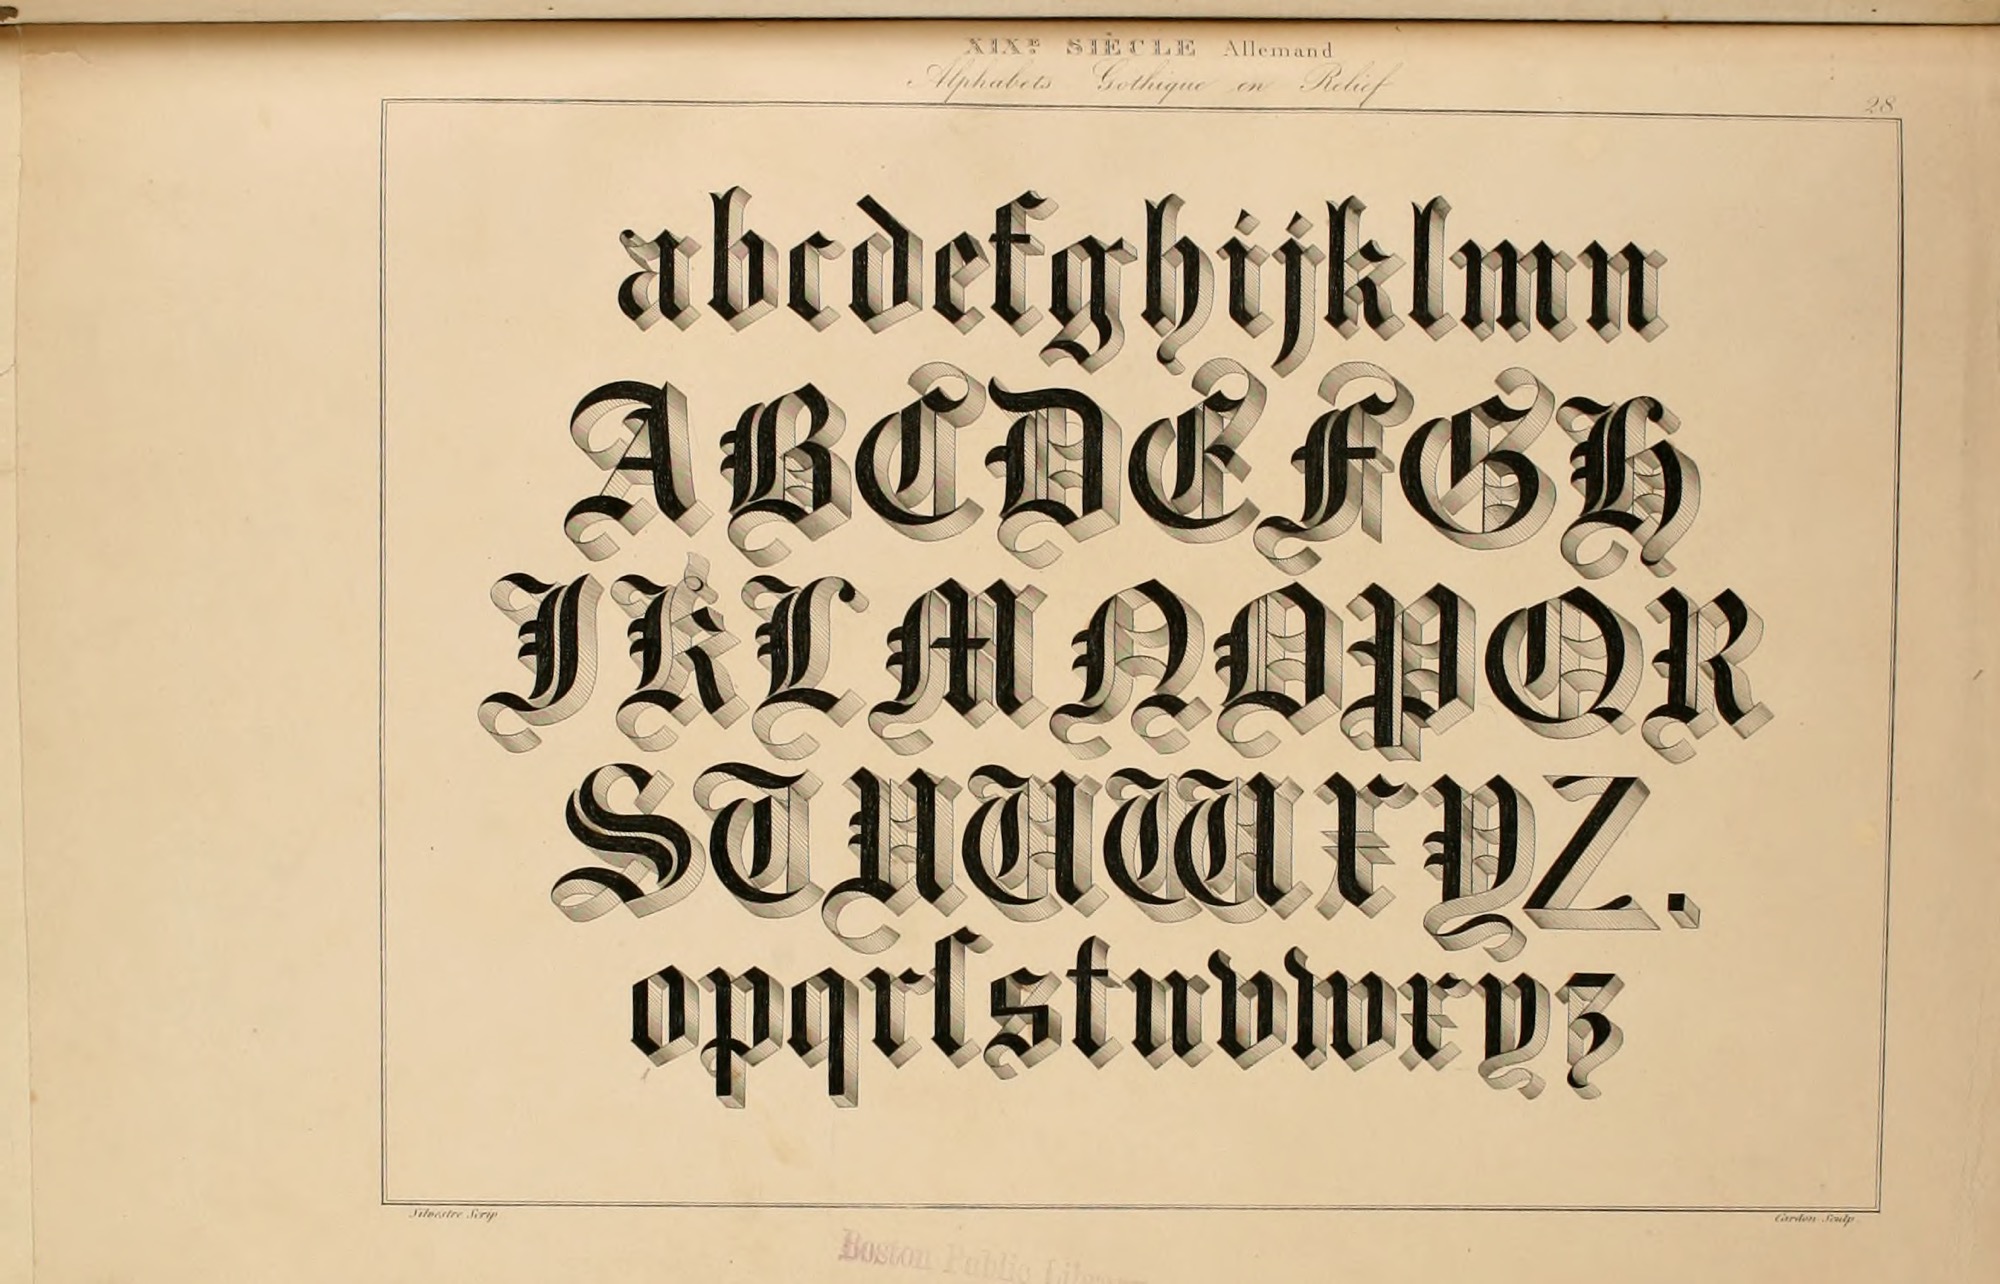 XIXE SIÈCLE Allemand
Alphabets Gothique en Relief
28
abcdefghijklmn
ABCDEFGH
JKLMNOPQR
STUUWXYZ.
opqrſstuvwxyz
Silvestre Scrip
Cardon Sculp.
Boston Public Library